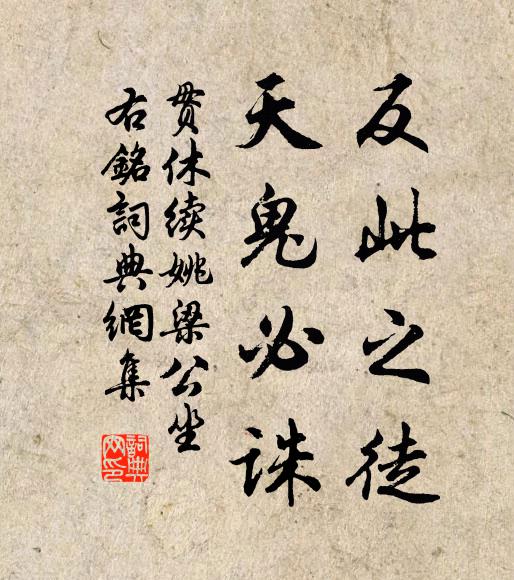 反此之徒
天鬼必誅
貫休续姚梁公坐
右銘詞典網集
詞典
网印